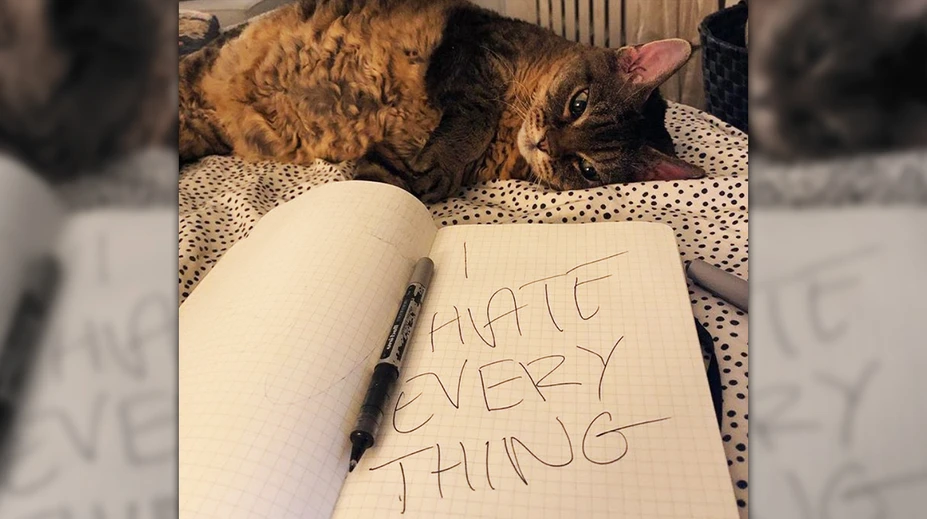 I
HATE
EVERY
THING